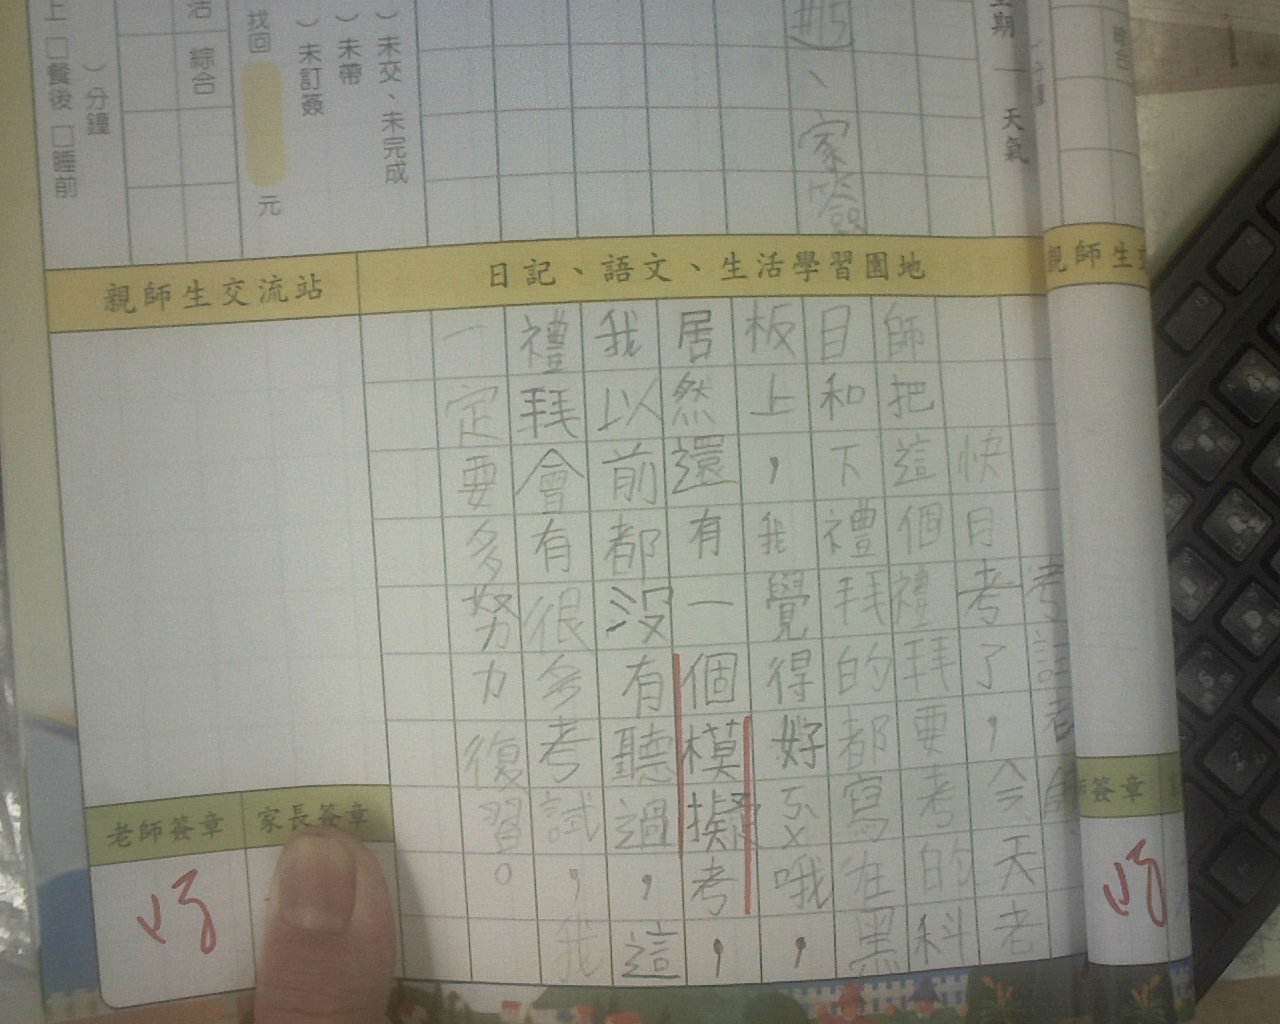 星期一 天氣
家簽
)未交、未完成
)未帶
)未訂簽
找回
元
綜合
)分鐘
上□餐後□睡前
日記、語文、生活學習園地
親師生交流站
快目考了,今天老
師把這個禮拜要考的科
目和下禮拜的都寫在黑
板上,我覺得好多哦,
居然還有一個模擬考,
我以前都沒有聽過,這
禮拜會有很多考試,我
一定要多努力復習。
老師簽章
家長簽章
親師生交
師簽章